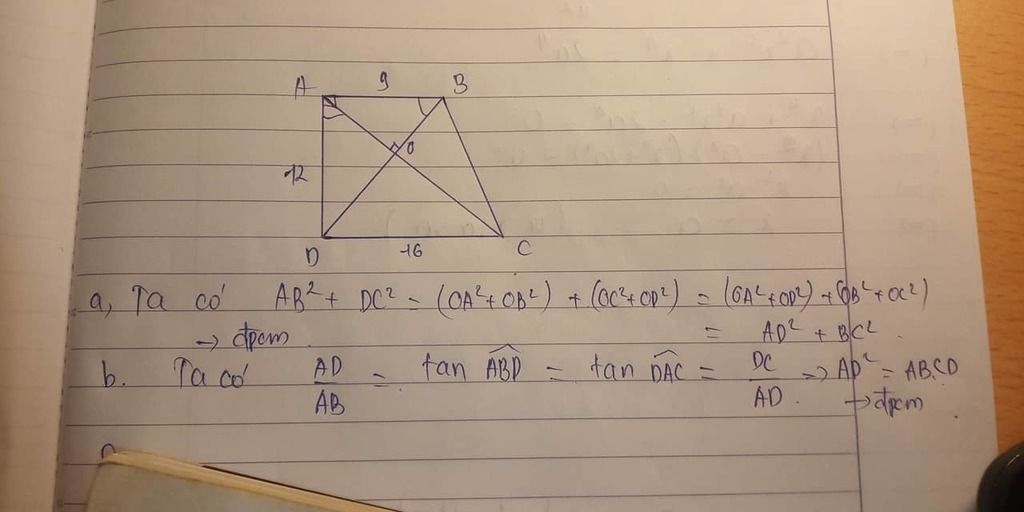 A 9 B
O
12
D 16 C
a, Ta có AB² + DC² = (OA²+OB²) + (OC²+OD²) = (OA²+OD²) + (OB²+OC²)
→ đpcm. = AD² + BC².
b. Ta có AD/AB = tan ABD̂ = tan DAĈ = DC/AD. => AD² = AB.CD
→ đpcm.